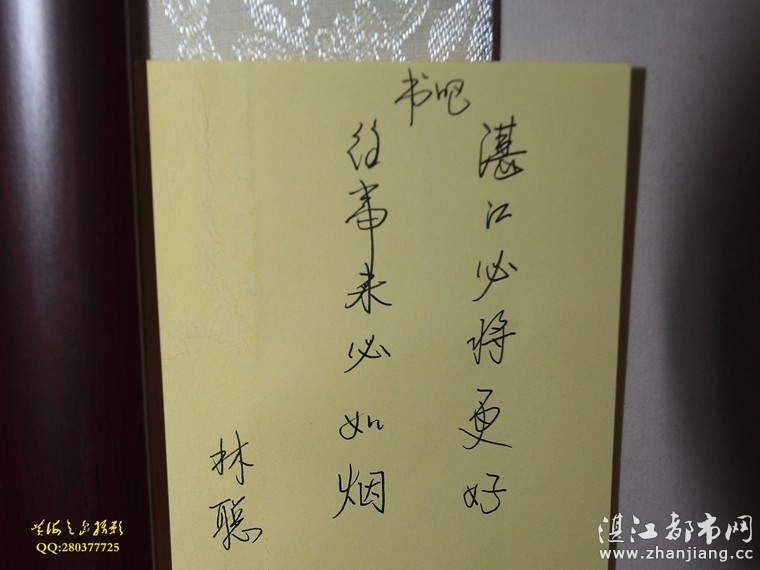 书吧
湛江必将更好
往事未必如烟
林聪
QQ:280377725
湛江都市网
www.zhanjiang.cc